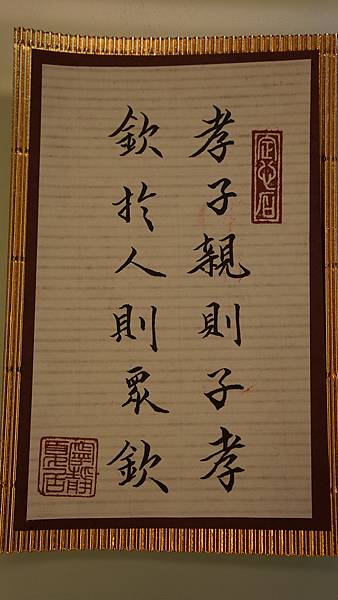 孝子親則子孝
欽於人則眾欽